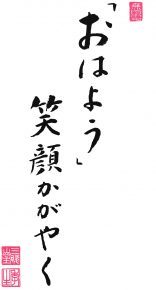 「おはよう」
笑顔かがやく